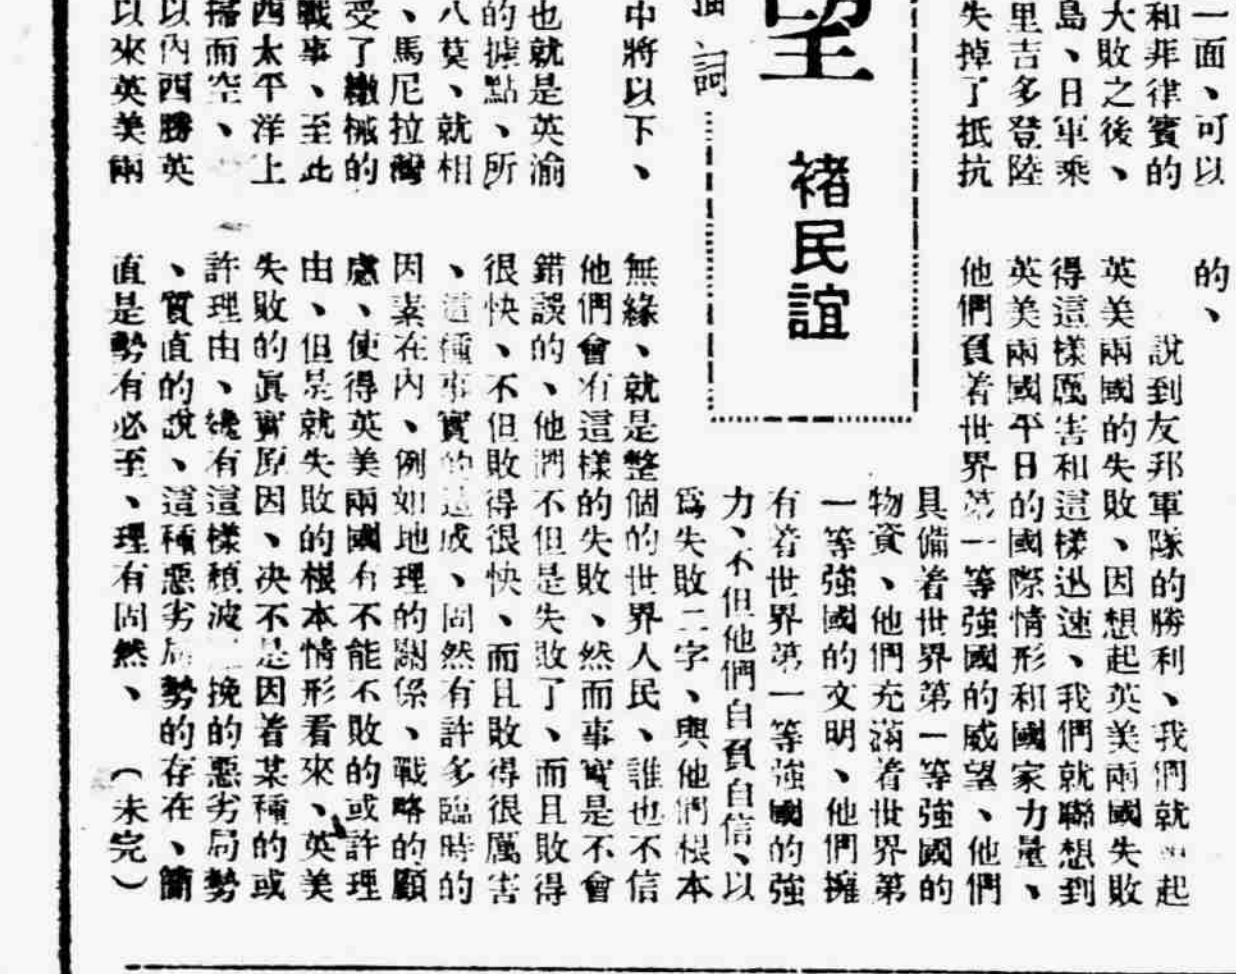 一面、可以
和非律賓的
大敗之後、
島、日軍乘
里吉多登陸
失掉了抵抗
望
褚民誼
詞
中將以下、
也就是英渝
的據點、所
八莫、就相
、馬尼拉灣
受了繳械的
戰事、至此
西太平洋上
掃而空、
以內西勝英
以來英美兩
的、
說到友邦軍隊的勝利、我們就起
英美兩國的失敗、因想起英美兩國失敗
得這樣厲害和這樣迅速、我們就聯想到
英美兩國平日的國際情形和國家力量、
他們負著世界第一等強國的威望、他們
具備着世界第一等強國的
物資、他們充滿着世界第
一等強國的文明、他們擁
有着世界第一等強國的強
力、不但他們自負自信、以
爲失敗二字、與他們根本
無緣、就是整個的世界人民、誰也不信
他們會有這樣的失敗、然而事實是不會
錯誤的、他們不但是失敗了、而且敗得
很快、不但敗得很快、而且敗得很厲害
、這種事實的造成、固然有許多臨時的
因素在內、例如地理的關係、戰略的顧
慮、使得英美兩國有不能不敗的或許理
由、但是就失敗的根本情形看來、英美
失敗的眞實原因、决不是因着某種的或
許理由、纔有這樣頽波挽的惡劣局勢
、質直的說、這種惡劣局勢的存在、簡
直是勢有必至、理有固然、（未完）